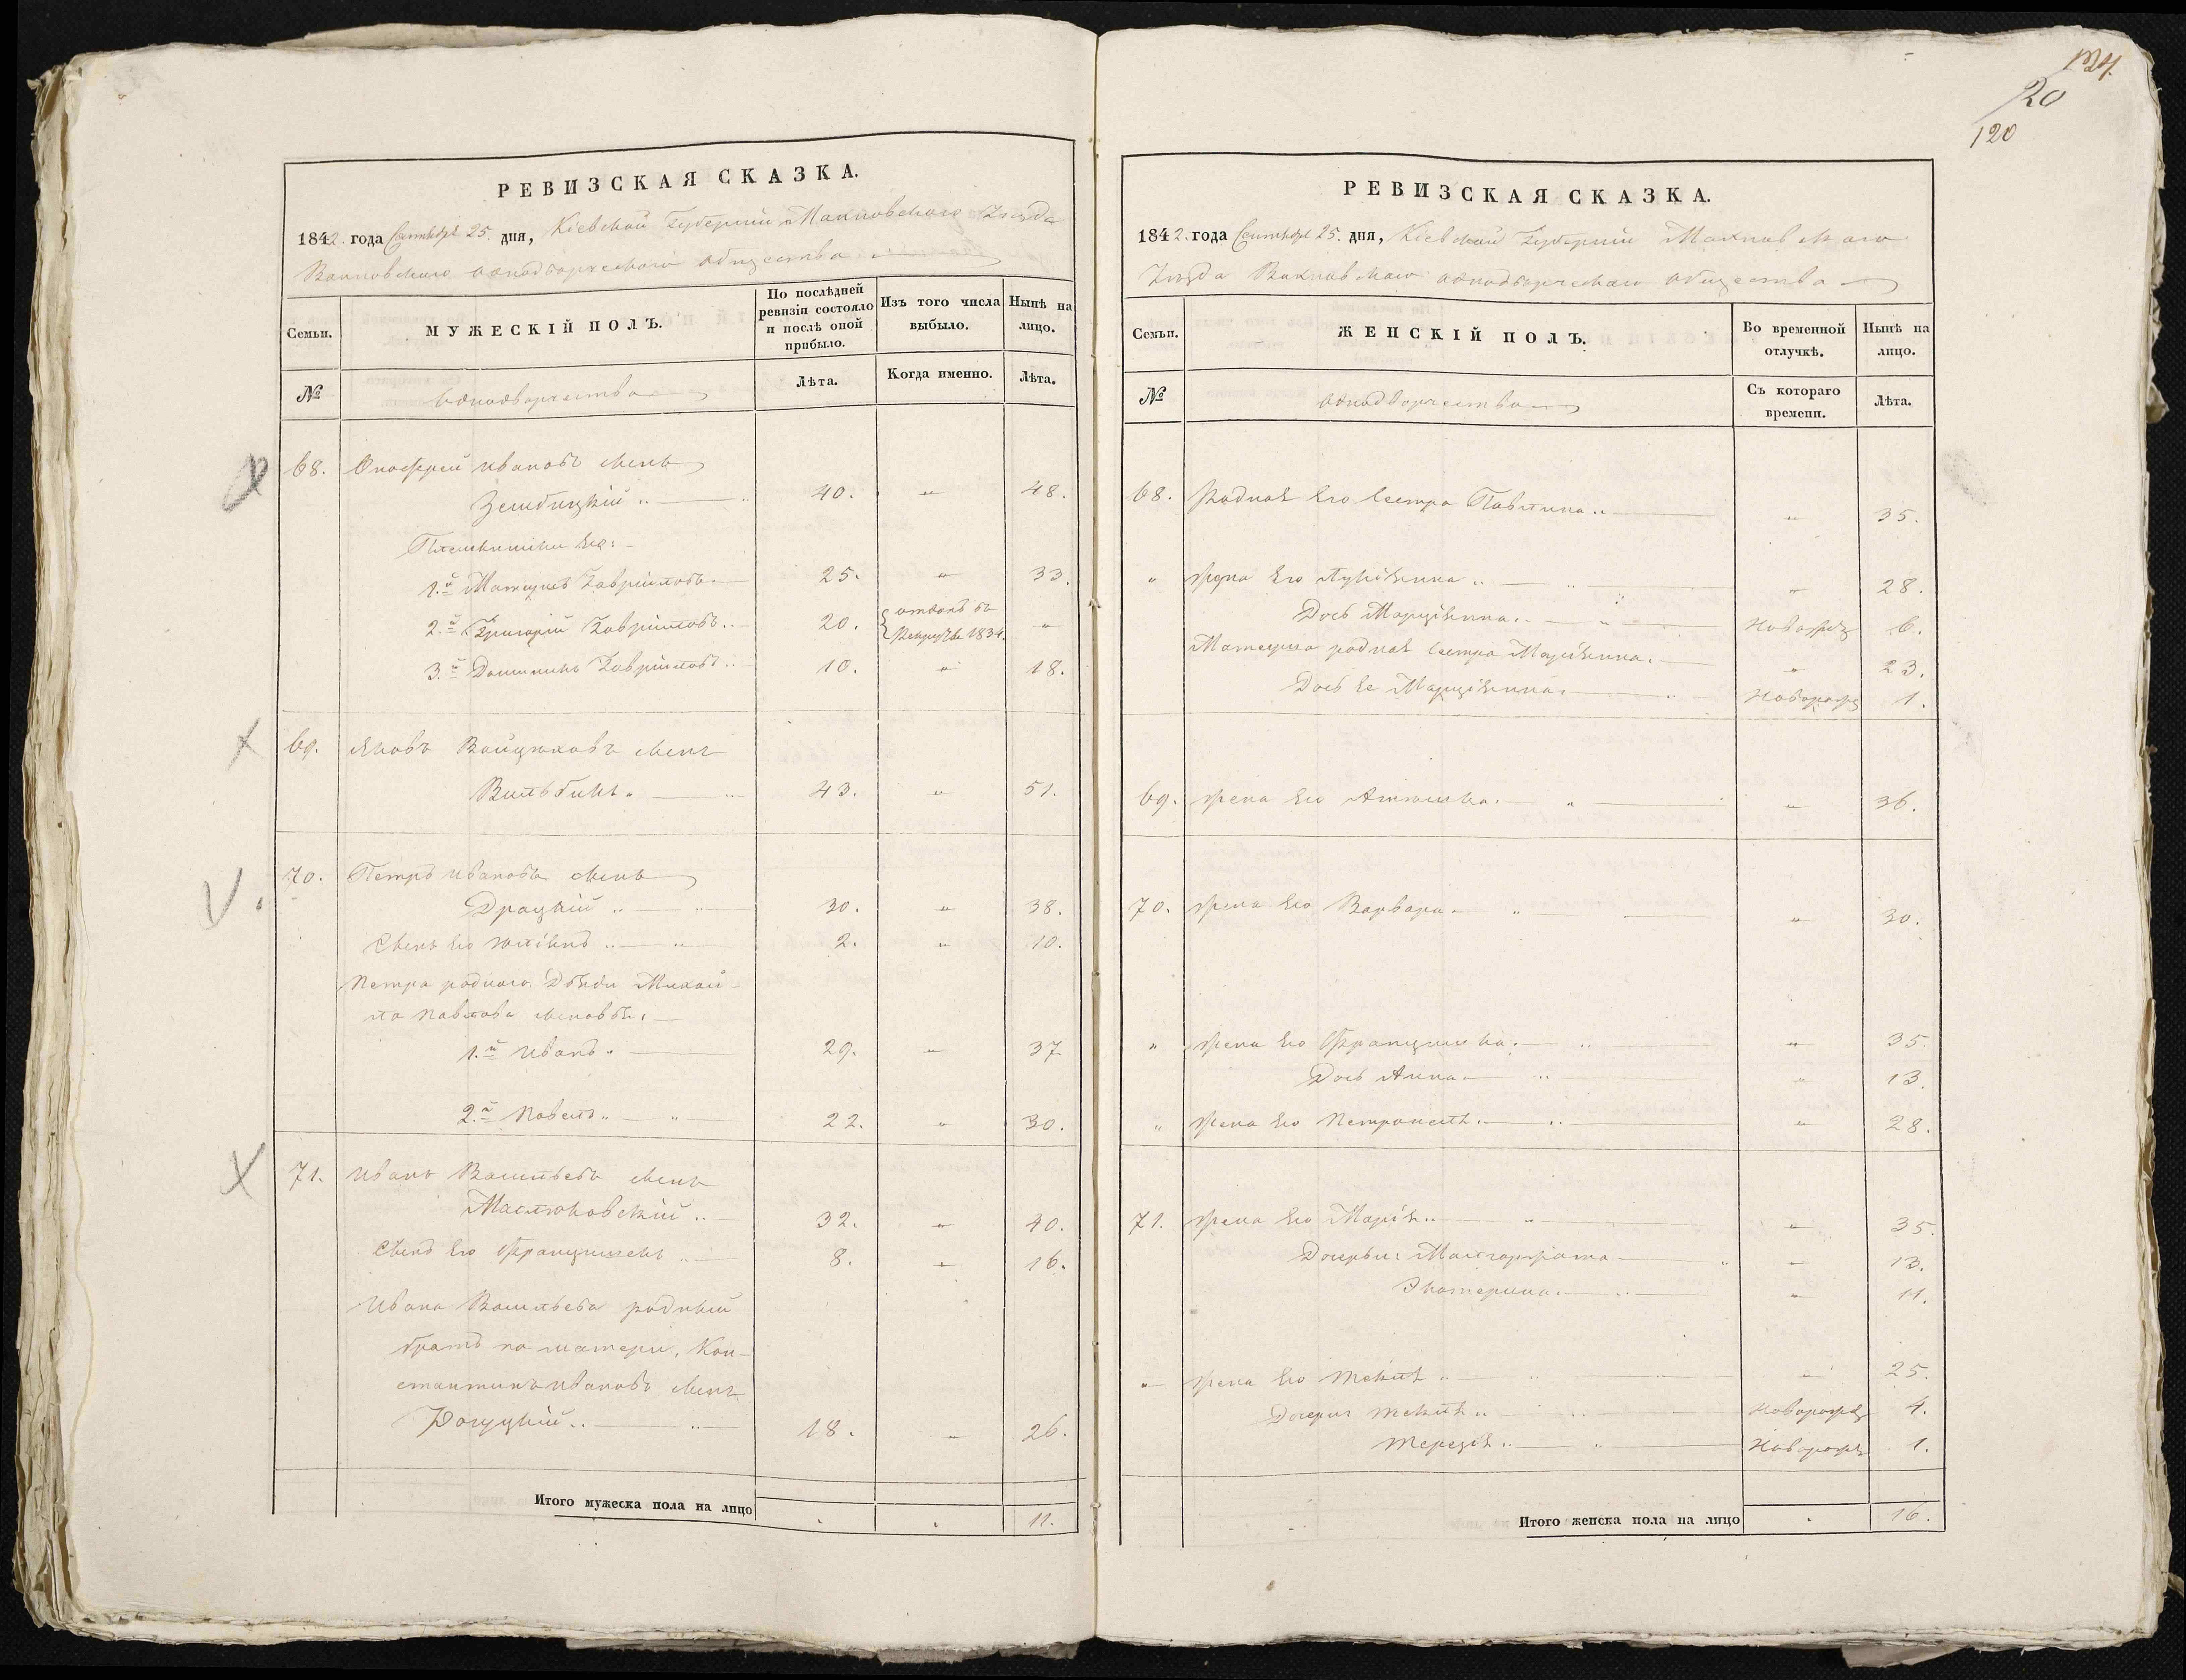 РЕВИЗСКАЯ СКАЗКА.
1842. года Сентября 25. дня, Кіевской Губерніи Махновского Уезда
Вахновского однодворческого общества
Семьи.
МУЖЕСКІЙ ПОЛЪ.
По послѣдней ревизіи состояло и послѣ оной прибыло.
Изъ того числа выбыло.
Нынѣ на лицо.
№
однодворчества
Лѣта.
Когда именно.
Лѣта.
68. Онофрей Ивановъ сынъ
40. " 48.
Племянники его:
1.й Матеушъ Гаврииловъ 25. " 33.
2.й Григорій Гаврииловъ 20. отданъ въ рекруты 1834. "
3.й Доминикъ Гаврииловъ 10. " 18.
69. Яковъ Войцеховъ сынъ
43. " 51.
70. Петръ Ивановъ сынъ
Драцкій 30. " 38.
Сынъ его Юліянъ 2. " 10.
Петра родного Дяди Михай-
ла Павлова сыновья:
1.й Иванъ 29. " 37
2.й Павелъ 22. " 30.
71. Иванъ Васильевъ сынъ
Маслюковскій 32. " 40.
Сынъ его Францишекъ 8. " 16.
Ивана Васильева родный
братъ по матери, Кон-
стантинъ Ивановъ сынъ
Рогуцкій 18. " 26.
Итого мужеска пола на лицо 11.
134.
20
120
РЕВИЗСКАЯ СКАЗКА.
1842. года Сентября 25. дня, Кіевской Губерніи Махновского
Уезда Вахновского однодворческого общества
Семьи.
ЖЕНСКІЙ ПОЛЪ.
Во временной отлучкѣ.
Нынѣ на лицо.
№
однодворчества
Съ котораго времени.
Лѣта.
68. Родная его сестра Павлина " 35.
" Жена его Лукіянна " 28.
Дочь Марціянна Новорожд 6.
Матеуша родная сестра Маріянна " 23.
Дочь ее Марціянна Новорожд 1.
69. Жена его " 36.
70. Жена его Варвара " 30.
" Жена его Францишка " 35.
Дочь Анна " 13.
" Жена его Петронеля " 28.
71. Жена его Марія " 35.
Дочери: Малгоржата " 13.
Экатерина " 11.
" Жена его Текля " 25.
Дочери Текля Новорожд 4.
Терезя Новорожд 1.
Итого женска пола на лицо 16.